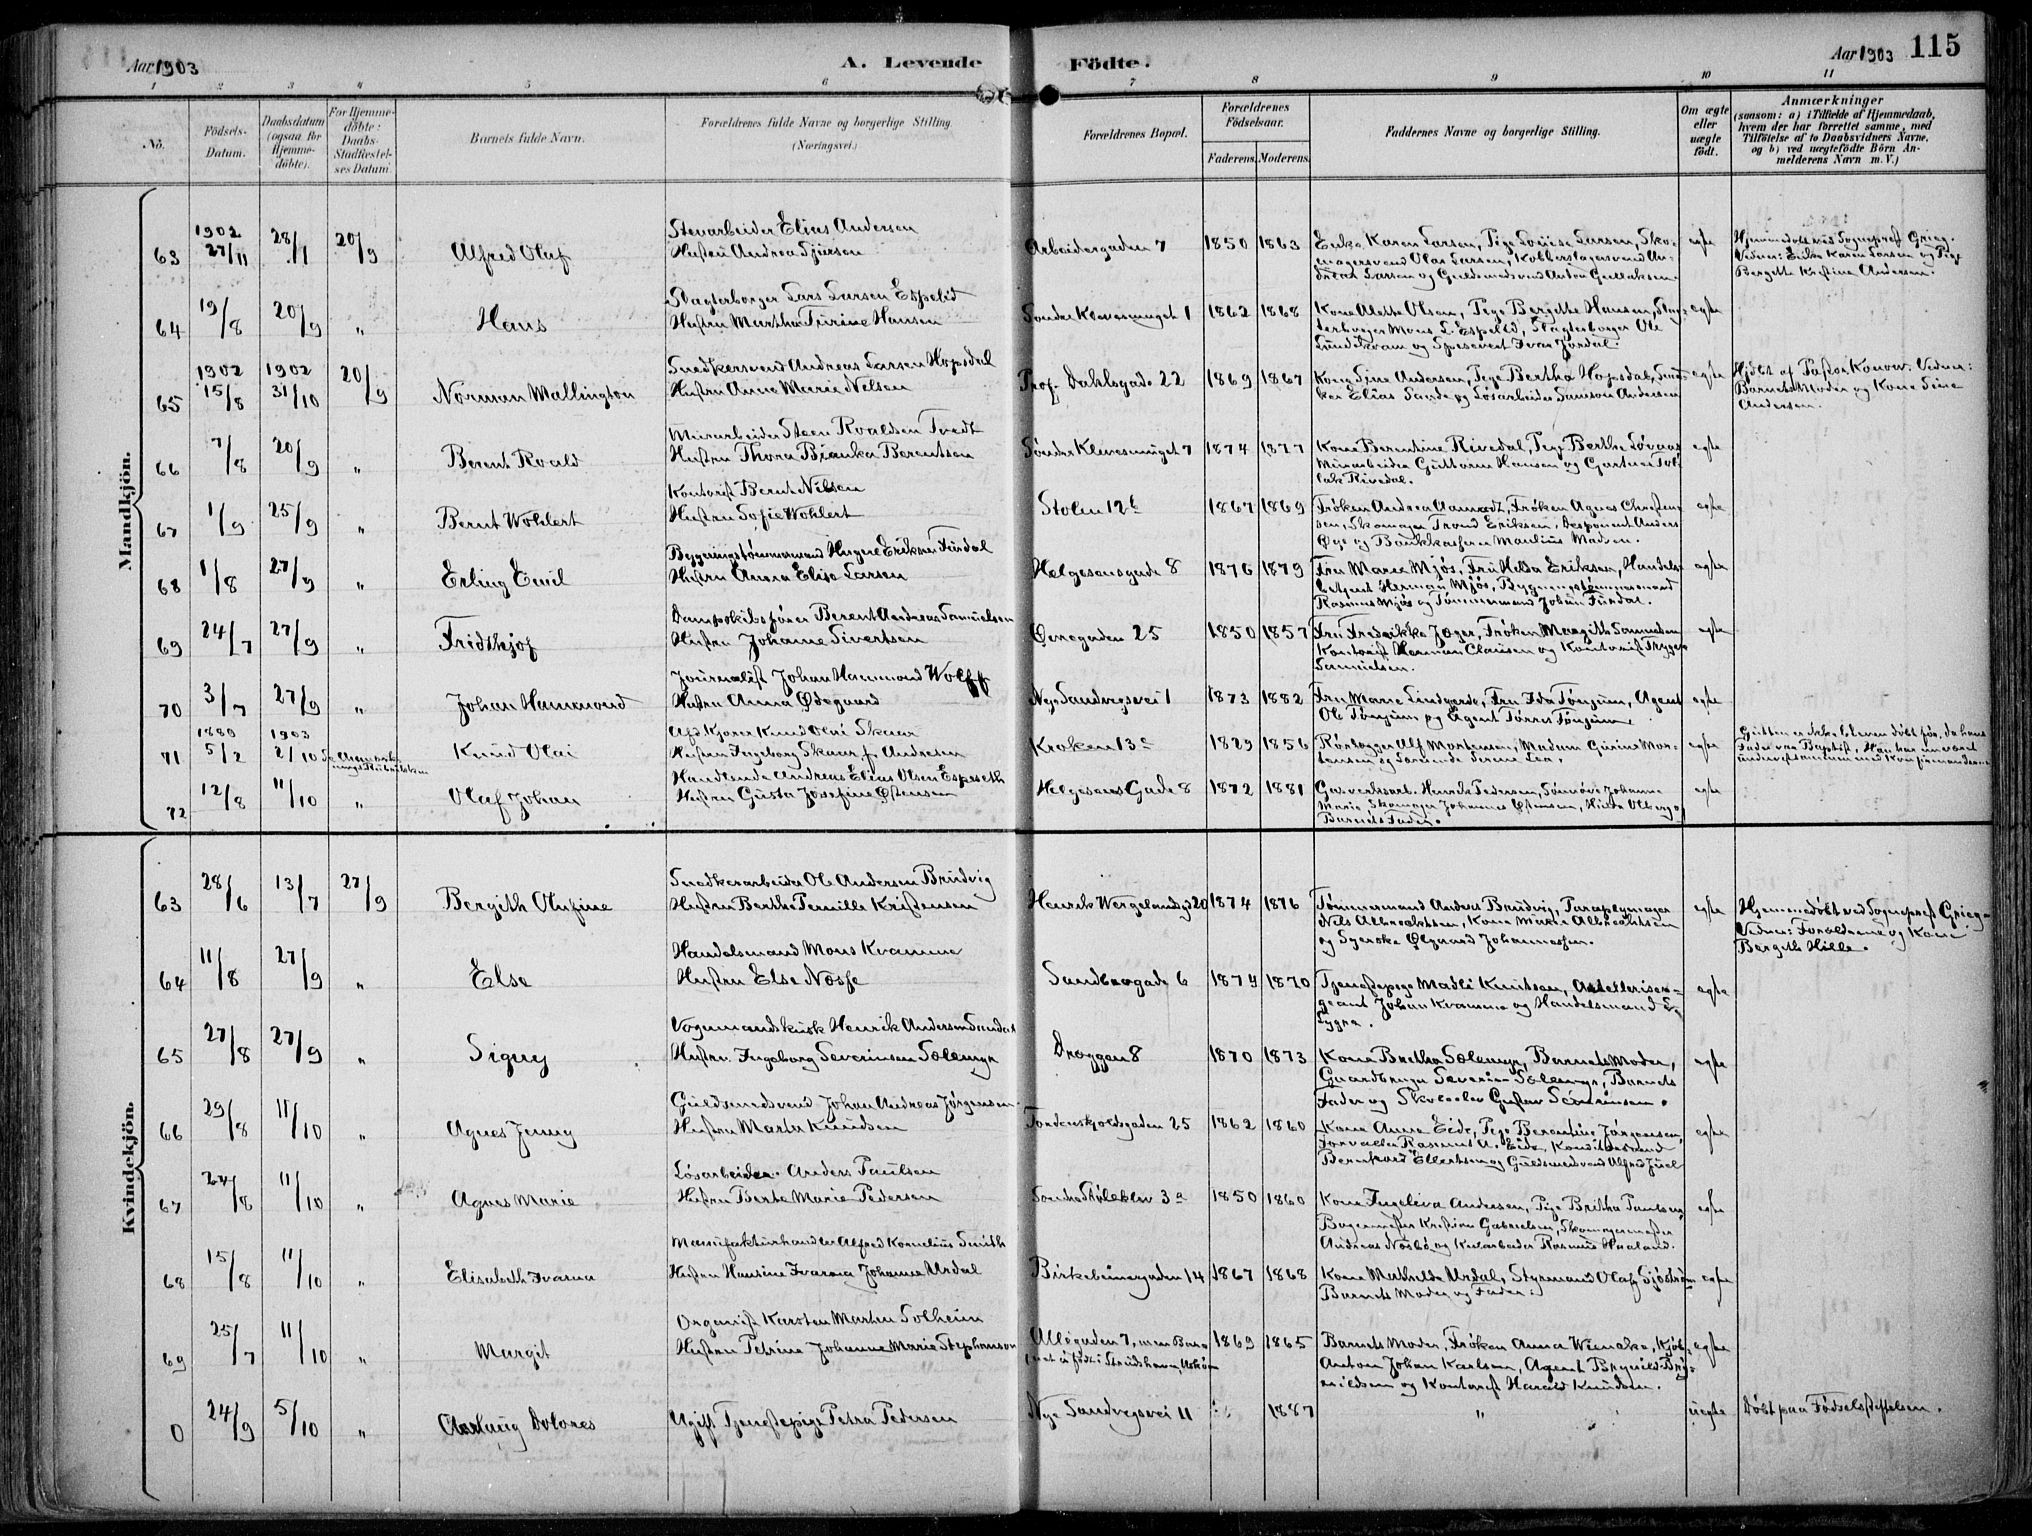 Aar 1903
A. Levende Födte.
Aar 1903 115
1 2 3 4 5 6 7 8 9 10 11
No.
Födsels-Datum.
Daabsdatum (ogsaa for Hjemme-döbte).
For Hjemme-döbte: Daabs-Stadfæstel-ses Datum.
Barnets fulde Navn.
Forældrenes fulde Navne og borgerlige Stilling. (Næringsvei.)
Forældrenes Bopæl.
Forældrenes Födselsaar.
Faderens. Moderens.
Faddernes Navne og borgerlige Stilling.
Om ægte eller uægte födt.
Anmærkninger
(saasom: a) i Tilfælde af Hjemmedaab, hvem der har forrettet samme, med Tilföielse af to Daabsvidners Navne, og b) ved uægtefödte Börn An-melderens Navn m. V.)
Mandkjön.
63 1902 27/11 28/1 20/9 Alfred Olaf
Stenarbeider Elias Andersen
Hustru Andrea Sjursen
Arbeidergaden 7 1850 1863
Enke Karen Larsen, Pige Lovise Larsen, Sko-
magersvend Olas Larsen, Kobberslagersvend An-
dreas Larsen og Guldsmedsvend Anton Gullaksen.
egte
Hjemmedöbt ved Sogneprest Grieg.
Vidner: Enke Karen Larsen og Pige
Bergette Kristine Andersen.
64 19/8 20/9 " Hans
Slagterborger Lars Larsen Espelid
Hustru Martha Turine Hansen
Söndre Klevesmuget 1 1862 1868
Kone Alette Olsen, Pige Bergithe Hansen, Slag-
terborger Mons L. Espelid, Slagterborger Ole
egte
65 1902 15/8 1902 31/10 20/9 Norman Wallington
Snedkersvend Andreas Larsen Hopsdal
Hustru Anna Marie Nilsen
Prof. Dahlsgade 22 1869 1867
Kone Sine Andersen, Pige Bertha Hopsdal, Sned-
ker Elias Sande og Lösarbeider Samson Andersen
egte
Hjdöbt af Pastor Konow. Vidner:
Barnets Moder og Kone Sine
Andersen.
66 7/8 20/9 " Berent Roald
Murarbeider Steen Roaldsen Tvedt
Hustru Thora Bianka Berentsen
Söndre Klevesmuget 7 1874 1877
Kone Berentine Rivedal, Pige Berthe Lövaas
Murarbeider Guttorm Hansen og Gartner Tol-
lak Rivedal.
egte
67 1/9 25/9 " Bernt Wohlert
Kontorist Bernt Nilsen
Hustru Sofie Wohlert
Stölen 12b 1867 1869
Fröken Andrea Aamodt, Fröken Agnes Christen-
sen, Skomager Trond Eriksen, Disponent Anders
Öye og Bankkasserer Maulius Madsen.
egte
68 1/8 27/9 " Erling Emil
Hustru Anna Elise Larsen
Helgesensgade 8 1876 1879
Fru Marie Mjös, Fru Helga Eriksen, Handels-
betjent Herman Mjös, Bygningstömmermand
Rasmus Mjös og Tömmermand Johan Furdal.
egte
69 24/7 27/9 " Fridthjof
Dampskibsförer Berent Andreas Samuelsen
Hustru Johanne Sivertsen
Övregaden 25 1850 1857
Fru Fredrikke Jæger, Fröken Margith Samuelsen
Kontorist Herman Clausen og Kontorist Trygve
Samuelsen.
egte
70 3/7 27/9 " Johan Hammond
Journalist Johan Hammond Wolff
Hustru Anna Ödegaard
Nye Sandvigsvei 1 1873 1882
Fru Marie Lindgaard, Fru Ida Tönjum, Agent
Ole Tönjum og Agent Törres Tönjum.
71 1880 5/2 1903 2/10 Knud Olai
Afd. Kjörer Knud Olai Skaar
Hustru Ingeborg Skaar f. Andresen
Kroken 13c 1829 1856
Rörlægger Alf Mortensen, Madam Gurine Mor-
tensen og
egte
Gutten er ikke bleven döbt för, da hans
Fader var Baptist. Han har
72 12/8 11/10 " Olaf Johan
Handlende Andreas Elias Olsen Espeseth
Hustru Gusta Josefine Östensen
Helgesens Gade 8 1872 1881
Gasverksarb. Henrik Pedersen, Sömöve Johanne
Marie Skomager Johannes Östensen,
Barnets Fader.
egte
Kvindekjön.
63 28/6 13/7 27/9 Bergith Olufine
Snedkerarbeider Ole Andersen Brudvig
Hustru Berthe Pernille Kristensen
Henrik Wergelandsg 20 1874 1876
Tömmermand Anders Brudvig, Paraplymager
Nils Albrechtsen, Kone Mikke Albrechtsen
og Syerske Ölgaard Johannessen.
egte
Hjemmedöbt ved Sogneprest Grieg
Vidner: Forældrene og Kone
Bergithe Hille.
64 11/8 27/9 " Else
Handelsmand Mons Kramme
Hustru Else Nösse
Sandbrogade 6 1874 1870
Tjenestepige Madli Knutsen, Artillerisser-
geant Johan Kramme og Handelsmand
Lygre.
egte
65 27/8 27/9 " Signy
Vognmandskusk Henrik Andersen Sandal
Hustru Ingeborg Severinsen Solemyr
Dræggen 8 1870 1873
Kone Bretha Solemyr, Barnets Moder,
Gaardbruger Severin Solemyr, Barnets
Fader og Skoleelev Gustav Severinsen.
egte
66 29/8 11/10 " Agnes Jenny
Guldsmedsvend Johan Andreas Jörgensen
Hustru Marta Knudsen
Tordenskjoldsgaden 25 1862 1860
Kone Anna Eide, Pige Berentine Jörgensen,
Forvalter Rasmus A. Eide, Konditorsvend
Bernhard Ellertsen og Guldsmedsvend Alfred Juel
egte
67 24/8 11/10 " Agnes Marie
Lösarbeider Anders Paulsen
Hustru Berte Marie Pedersen
Söndre Stölebkr 3a 1850 1860
Kone Ingeleiva Andersen, Pige Britha Paulsen,
Bagermester Kristian Gabrielsen, Skomagermester
Andreas Næsbö og Kularbeider Rasmus Haaland.
egte
68 15/8 11/10 " Elisabeth Ivarna
Manufakturhandler Alfred Kornelius Smith
Hustru Hansine Ivarna Johanne Urdal
Birkebeinergaden 14 1867 1868
Kone Mathilde Urdal, Styrmand Olaf Sjöström
Barnets Moder og Fader.
egte
69 25/7 11/10 " Margit
Organist Karsten Marten Solheim
Hustru Petrine Johanne Marie Stephansen
Allegaden 7, men Bar-
net er födt i Strudshavn, Askön
1869 1865
Barnets Moder, Fröken Anna Wernike, Kjöb.
Anton Johan Karlsen, Agent Brynild Bry-
nildsen og Kontorist Harald Knudsen.
egte
0 24/9 5/10 " Aslaug Dolores
Ugift Tjenestepige Petra Pedersen
Nye Sandvigsvei 11 " 1887
"
uegte
Döbt paa Födselsstiftelsen.